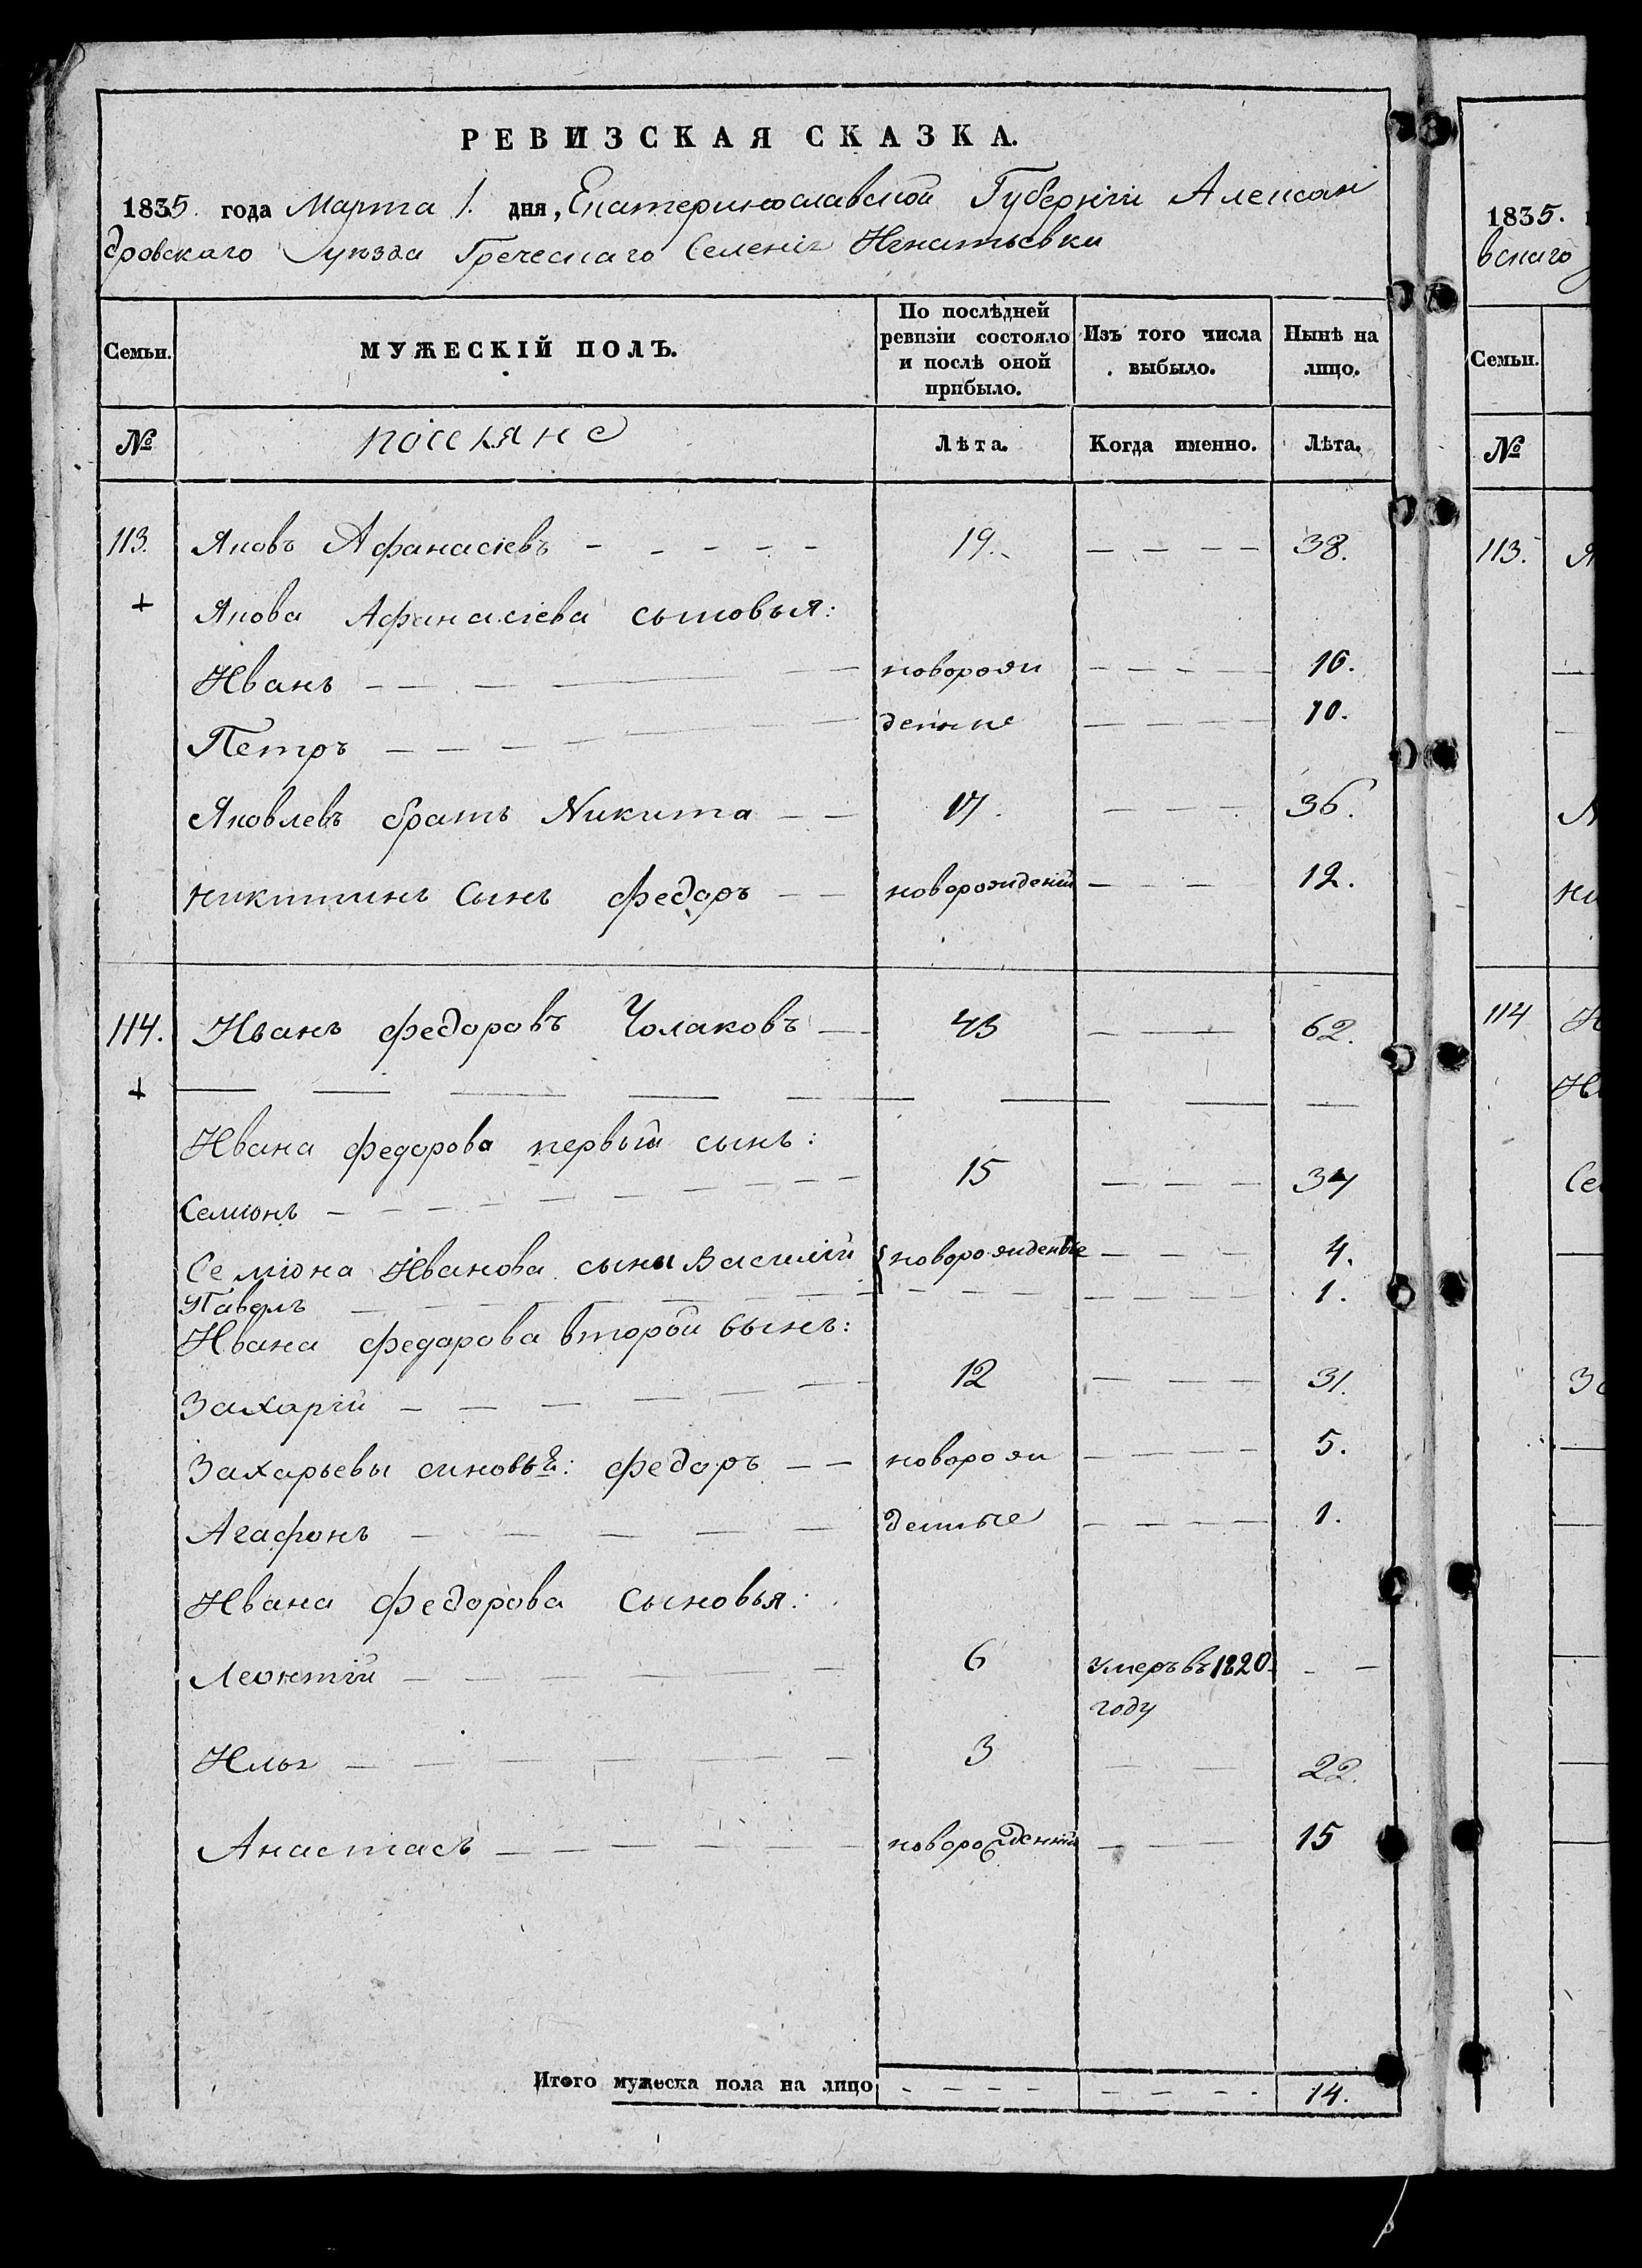 РЕВИЗСКАЯ СКАЗКА.
1835. года Марта 1. дня, Екатеринославской Губерніи Алексан
дровскаго уѣзда Греческаго Селенія Игнатьевки
Семьи. МУЖЕСКІЙ ПОЛЪ. По послѣдней ревизіи состояло и послѣ оной прибыло. Изъ того числа выбыло. Нынѣ на лицо.
№ поселяне Лѣта. Когда именно. Лѣта.
113. Яковъ Афанасіевъ - - - - - 19. - - - - 38.
+ Якова Афанасіева сыновья:
Иванъ - - - - - новорож - - - - 16.
Петръ - - - - - денные - - - - 10.
Яковлевъ братъ Никита - - 17. - - - 36.
никитинъ Сынъ федоръ - - новорожденій - - - 12.
114. Иванъ федоровъ Чолаковъ - 43 - - 62.
+ - - - - - - - -
Ивана федорова первый сынъ:
Семіонъ - - - - - - - - 15 - - - 34
Семіона Иванова сыны Василій { новорожденые - - - 4.
Павелъ - - - - - - - - - - - - 1.
Ивана федарова второй сынъ:
Захарій - - - - - 12 - - - 31.
Захарьевы синовья: федоръ - - новорож - - - - 5.
Агафонъ - - - - - денные - - - - 1.
Ивана федорова сыновья:
Леонтій - - - - - 6 умеръ въ 1820. - -
году
Илья - - - - - - 3 - - 22.
Анастасъ - - - - - - новорожденній - - - 15
Итого мужеска пола на лицо - - - - - - - - 14.
1835.
вскаго
Семьи.
№
113. Я
Н
ни
114 И
Ив
Се
За